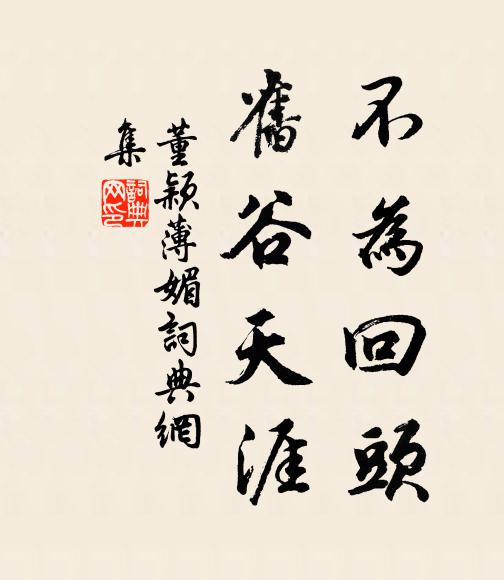 不為回頭
舊谷天涯
董穎薄媚詞典網
集
詞典
网印